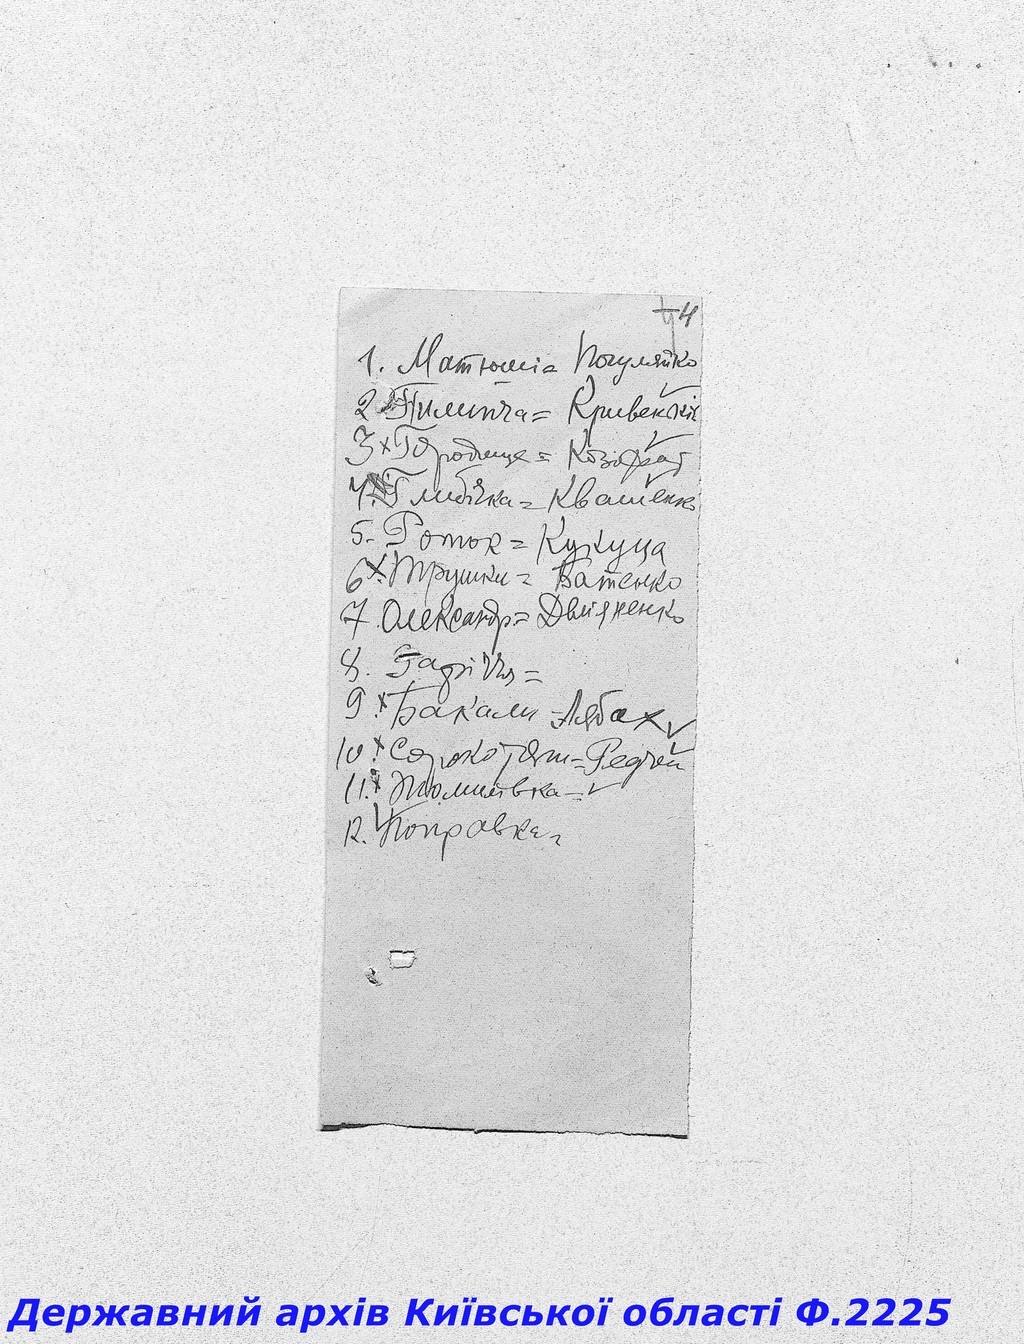 4
1. Матюші = Погуляйко
2. Пилипча = Кривен
3 х Городище = Козо
4. х Глибічка = Квашенко
5. Роток = Кукуца
6 х. Трушки = Батенко
7. Олександр = Дем'яненко
8.
9. х Бакали =
10. х Сорокотяги = Редчей
11. х Томилівка =
12. Поправка =
Державний архів Київської області Ф.2225